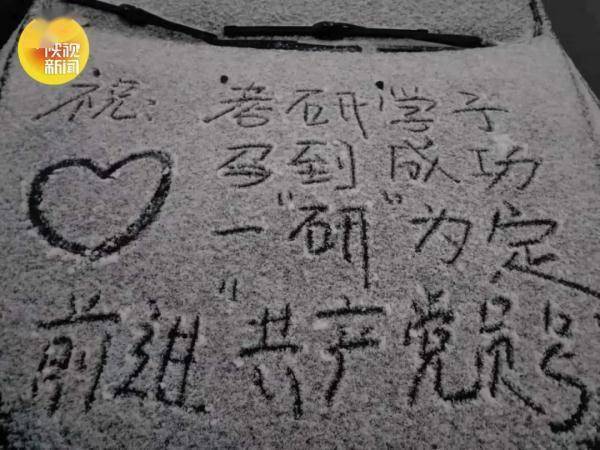 陕视
新闻
祝：考研学子
马到成功
一“研”为定
前进“共产党员号